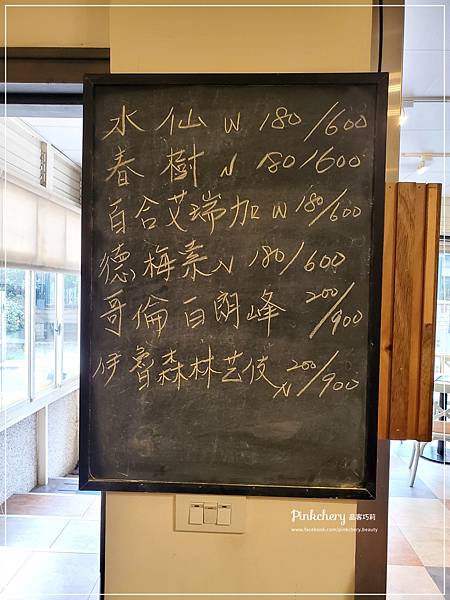 水仙 N 180/600
春樹 N 180/600
百合艾瑞加 N 180/600
德,梅素 N 180/600
哥倫白朗峰 200/900
伊魯森林艺伎 N 200/900
Pinkchery 品客巧莉
www.facebook.com/pinkchery.beauty